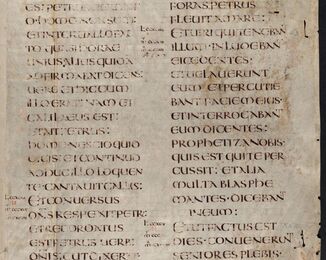 ES: PETRUS
O HOMO NON SUM:
ET INTERUALLO FAC
TO QUASI HORAE
UNIUS ALIUS QUIDA
ADFIRMABAT DICENS:
UERE ET HIC CUM
ILLO ERAT NAM ET
GALILAEUS EST:
ET AIT PETRUS:
HOMO NESCIO QUID
DICIS ET CONTINUO
ADHUC ILLO LOQUEN
TE CANTAUIT GALLUS:
ET CONUERSUS
DNS RESPEXIT PETR:
ET RECORDATUS
EST PETRUS UERBI
FORAS PETRUS
FLEUIT AMARE:
ET UIRI QUI TENEBAN
ILLUM INLUDEBAN
EI CEDENTES:
ET UELAUERUNT
EUM ET PERCUTIE
BANT FACIEM EIUS
ET INTERROGABAN
EUM DICENTES:
PROPHETIZA NOBIS:
QUIS EST QUI TE PER
CUSSIT: ET ALIA
MULTA BLASPHE
MANTES DICEBAN
IN EUM:
ET UT FACTUS EST
DIES CONUENERUN
SENIORES PLEBIS